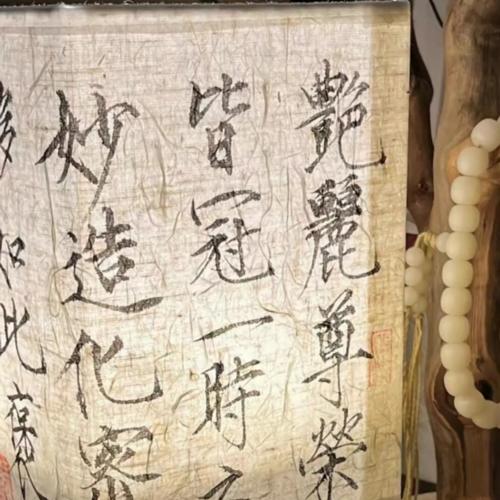 艷麗尊榮
皆冠一時
妙造化密
如此